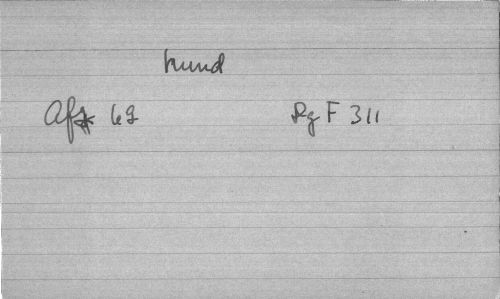 hund
Afz 62 Rg F 311